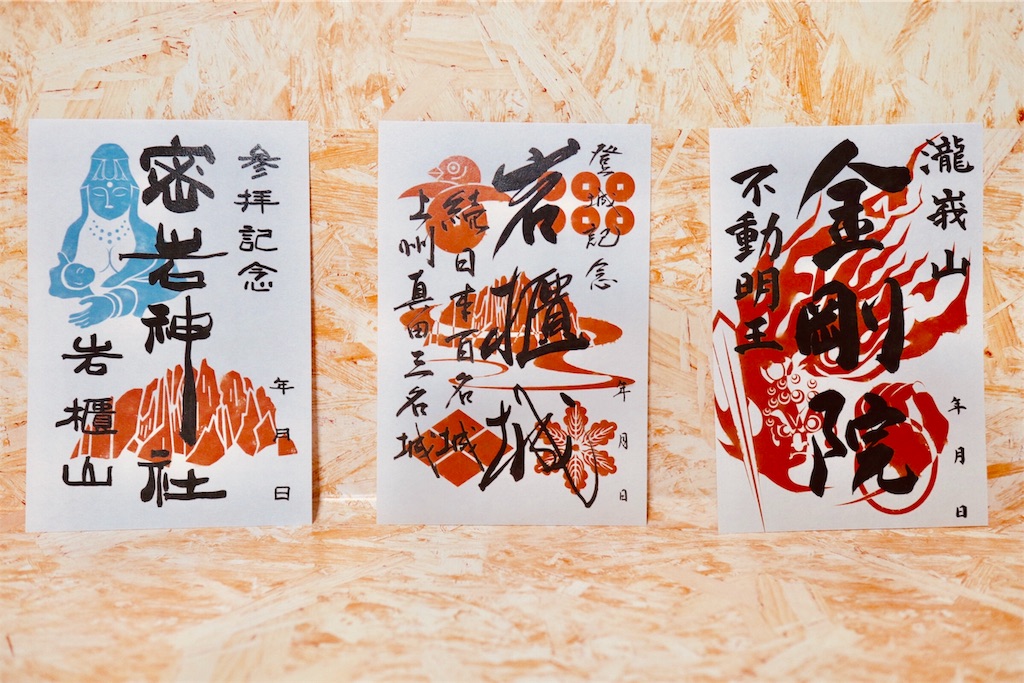 参拝記念
密岩神社
岩櫃山
年月日
登城記念
岩櫃城
続日本百名城
上州真田三名城
年月日
瀧峩山
金剛院
不動明王
年月日